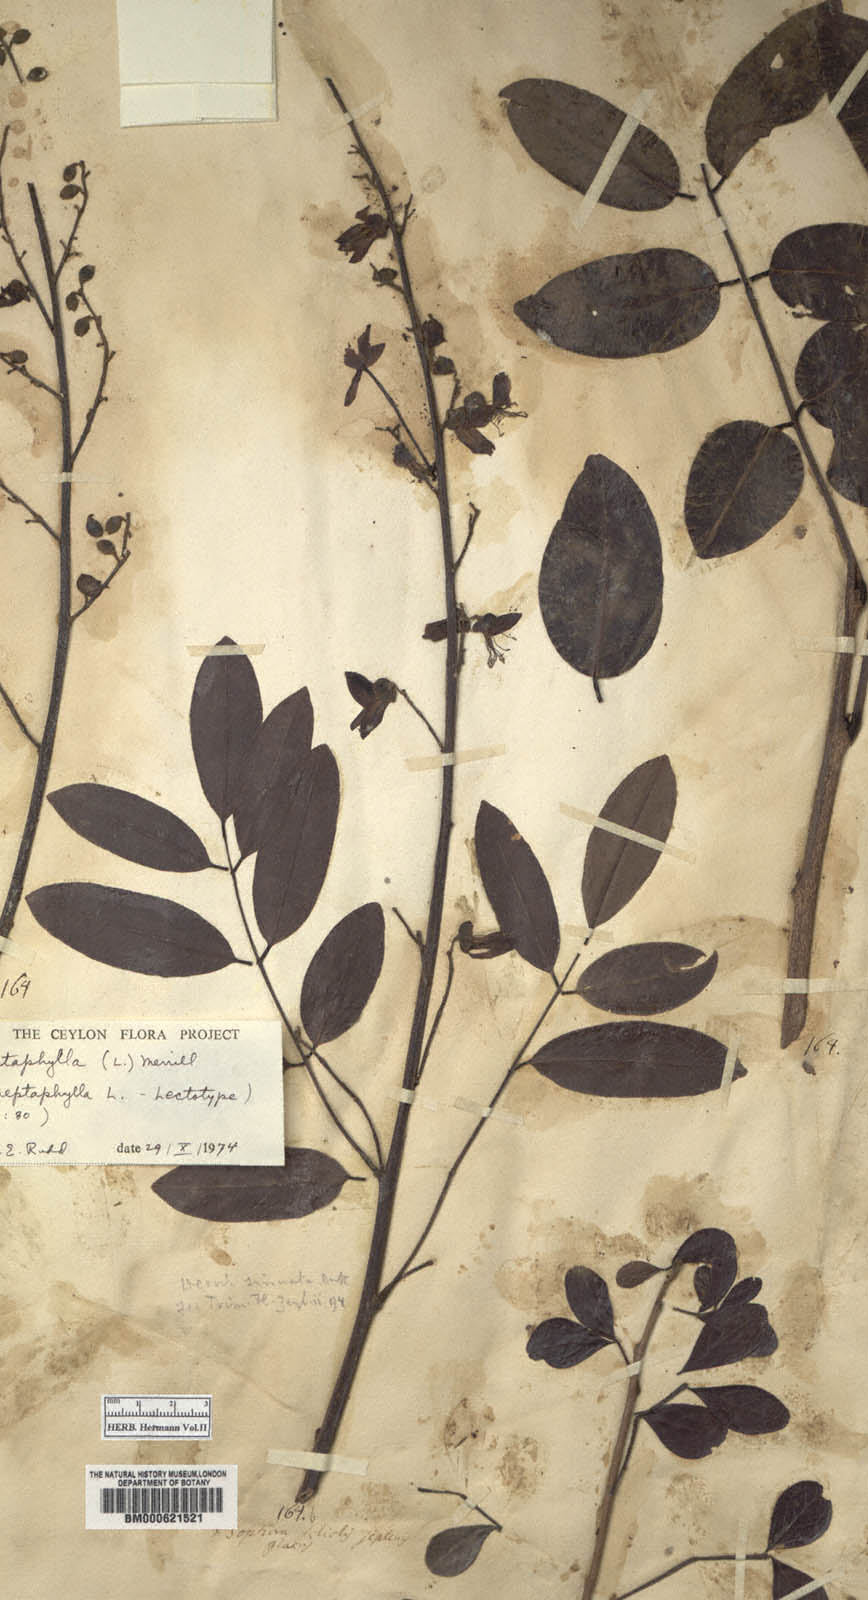 164
THE CEYLON FLORA PROJECT
taphylla (L.) Merrill
heptaphylla L. - Lectotype)
: 80 )
. E. Rudd date 29 / X / 1974
164.
sinuata
See Trim. Fl. Zeyl. ii. 94
mm 1 2 3
HERB. Hermann Vol.II
THE NATURAL HISTORY MUSEUM, LONDON
DEPARTMENT OF BOTANY
BM000621521
164.
Sophora